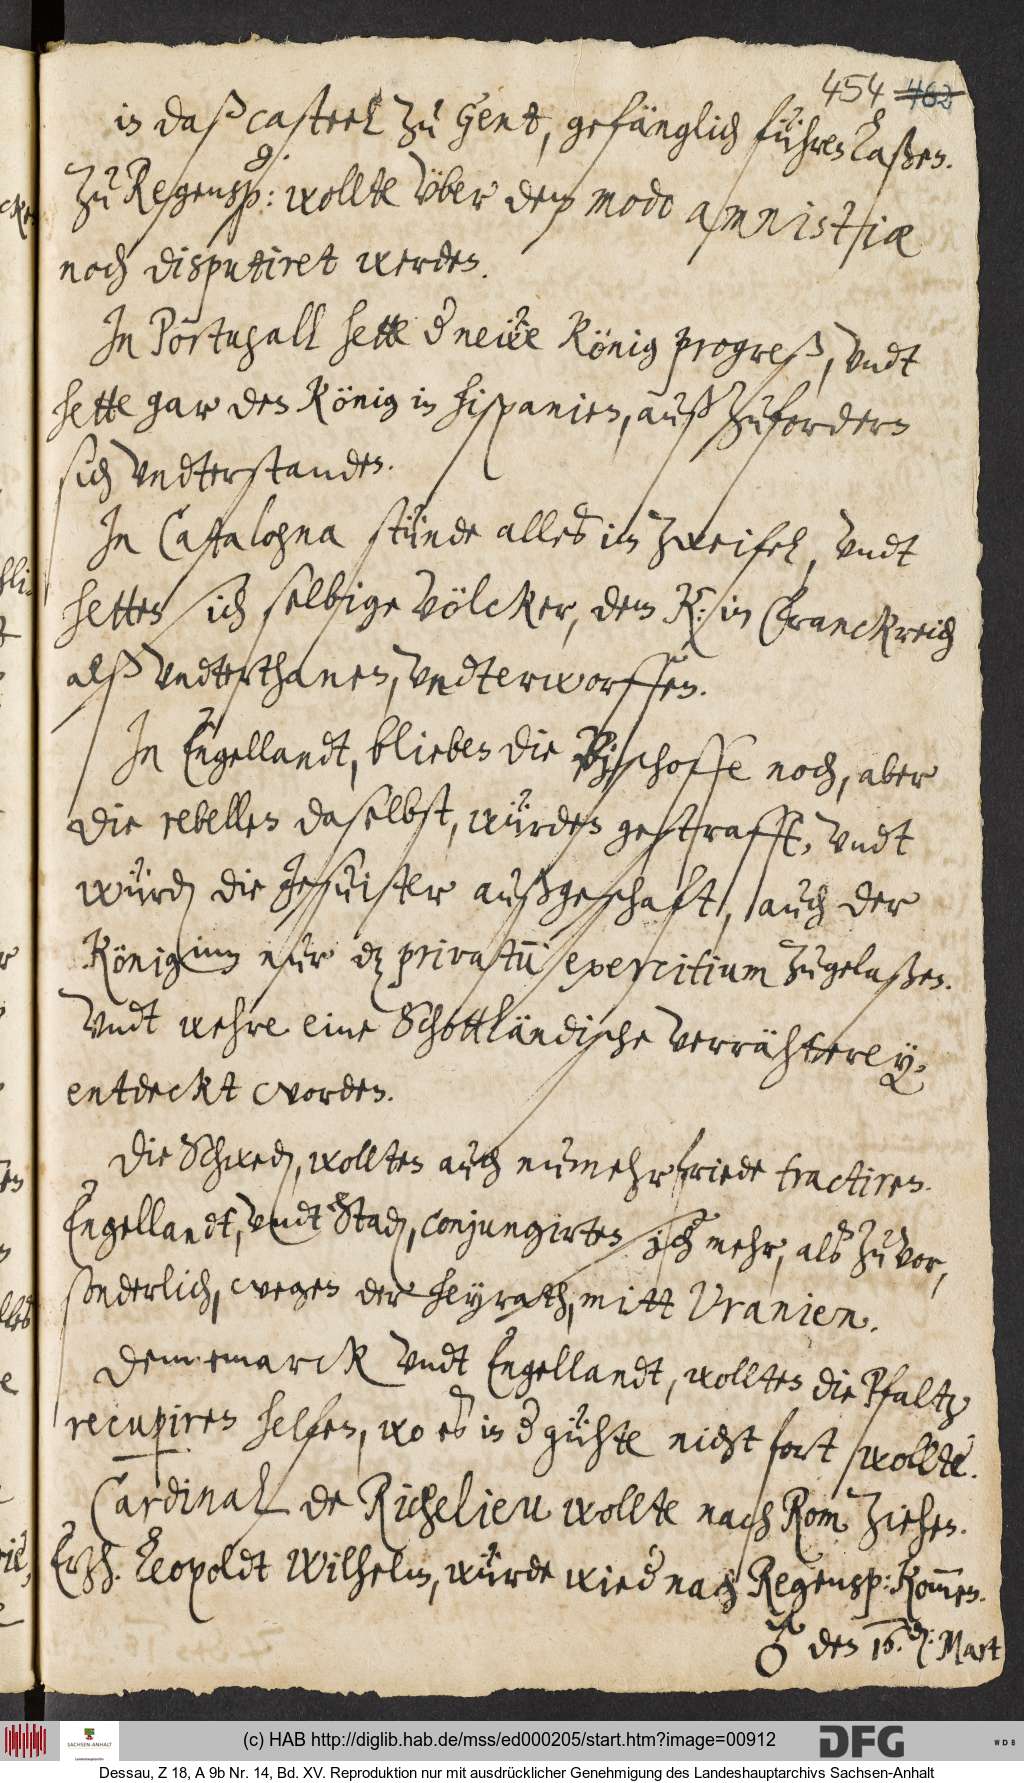 454 462
in daß casteel zu Gent, gefänglich führen laßen.
Zu Regensp: wollte vber dem modo amnistiæ
noch disputiret werden.
In Portugall hette d neẅe König progreß, vndt
hette gar den König in hispanien, auß zufordern
sich vndterstanden.
In Cattalogna stünde alles im zweifel, vndt
hetten sich selbige Völcker, dem K: in Franckreich
alß vndterthanen, vndterworffen.
In Engellandt, blieben die Bischoffe noch, aber
die rebellen daselbst, würden gestrafft, vndt
würd die Jesuiter außgeschaft, auch der
Königinn nur dz privatū exercitium zugelaßen.
Vndt wehre eine Schottländische verrähterey,
entdeckt worden.
Die Schwed, wollten auch numehr friede tractiren.
Engellandt, vndt Stad, conjungirten sich mehr, als zuvor,
sonderlich, wegen der heyrath, mitt Vranien.
Dennemarck vndt Engellandt, wollten die Pfaltz
recuperiren helfen, wo es in d gühte nicht fort wollte.
Cardinal de Richelieu wollte nach Rom ziehen.
Ertzh. Leopoldt Wilhelm, würde wied nach Regensp: kom̄en.
♂ den 16. Mart
(c) HAB http://diglib.hab.de/mss/ed000205/start.htm?image=00912
SACHSEN-ANHALT
DFG
WDB
Dessau, Z 18, A 9b Nr. 14, Bd. XV. Reproduktion nur mit ausdrücklicher Genehmigung des Landeshauptarchivs Sachsen-Anhalt